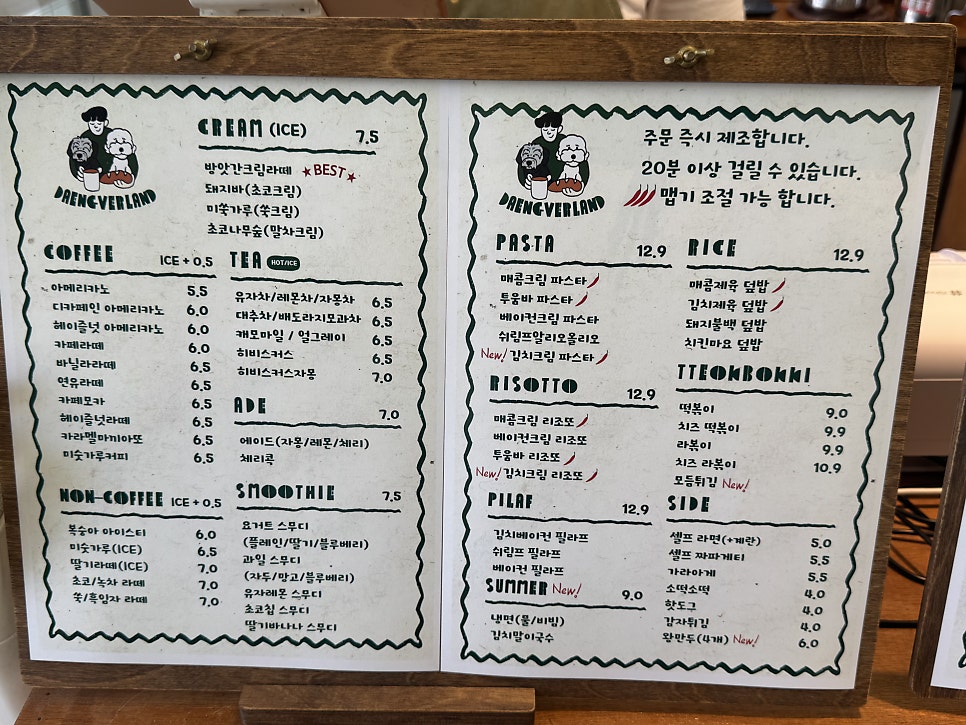 DAENGVERLAND
CREAM (ICE) 7.5
방앗간크림라떼 ★BEST★
돼지바(초코크림)
미쑥가루(쑥크림)
초코나무숲(말차크림)
COFFEE ICE + 0.5
아메리카노 5.5
디카페인 아메리카노 6.0
헤이즐넛 아메리카노 6.0
카페라떼 6.0
바닐라라떼 6.5
연유라떼 6.5
카페모카 6.5
헤이즐넛라떼 6.5
카라멜마끼아또 6.5
미숫가루커피 6.5
NON-COFFEE ICE + 0.5
복숭아 아이스티 6.0
미숫가루(ICE) 6.5
딸기라떼(ICE) 7.0
초코/녹차 라떼 7.0
쑥/흑임자 라떼 7.0
TEA HOT/ICE
유자차/레몬차/자몽차 6.5
대추차/배도라지모과차 6.5
캐모마일 / 얼그레이 6.5
히비스커스 6.5
히비스커스자몽 7.0
ADE 7.0
에이드(자몽/레몬/체리)
체리콕
SMOOTHIE 7.5
요거트 스무디
(플레인/딸기/블루베리)
과일 스무디
(자두/망고/블루베리)
유자레몬 스무디
초코칩 스무디
딸기바나나 스무디
DAENGVERLAND
주문 즉시 제조합니다.
20분 이상 걸릴 수 있습니다.
맵기 조절 가능 합니다.
PASTA 12.9
매콤크림 파스타
투움바 파스타
베이컨크림 파스타
쉬림프알리오올리오
New! 김치크림 파스타
RISOTTO 12.9
매콤크림 리조또
베이컨크림 리조또
투움바 리조또
New! 김치크림 리조또
PILAF 12.9
김치베이컨 필라프
쉬림프 필라프
베이컨 필라프
SUMMER New! 9.0
냉면(물/비빔)
김치말이국수
RICE 12.9
매콤제육 덮밥
김치제육 덮밥
돼지불백 덮밥
치킨마요 덮밥
TTEOKBOKKI
떡볶이 9.0
치즈 떡볶이 9.9
라볶이 9.9
치즈 라볶이 10.9
모듬튀김 New!
SIDE
셀프 라면(+계란) 5.0
셀프 짜파게티 5.5
가라아게 5.5
소떡소떡 4.0
핫도그 4.0
감자튀김 4.0
왕만두(4개) New! 6.0